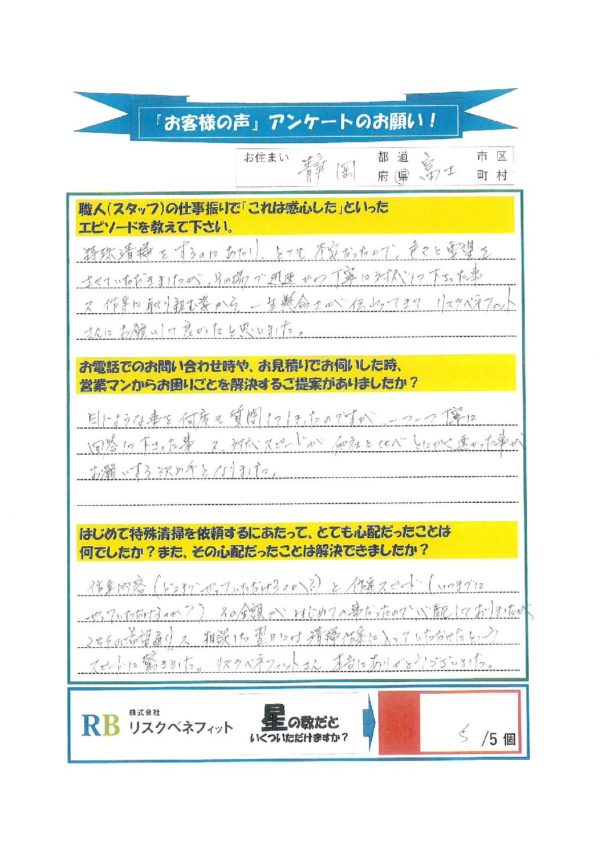 『お客様の声』アンケートのお願い！
お住まい 静岡 都道府県 富士 市区町村
職人（スタッフ）の仕事振りで「これは感心した」といった
エピソードを教えて下さい。
特殊清掃をするにあたり、とても不安だったので、色々と要望を
させていただきましたが、その場で迅速かつ丁寧に対応して下さった事
又 作業に取り組む姿から 一生懸命さが伝わってきて リスクベネフィット
さんにお願いして良かったと思いました。
お電話でのお問い合わせ時や、お見積りでお伺いした時、
営業マンからお困りごとを解決するご提案がありましたか？
同じような事を何度も質問してしまったのですが 一つ一つ丁寧に
回答して下さった事、又、対応スピードが 他社と比べ とにかく速かった事が
お願いする決め手となりました。
はじめて特殊清掃を依頼するにあたって、とても心配だったことは
何でしたか？また、その心配だったことは解決できましたか？
作業内容（どこまでやっていただけるのか？）と 作業スピード（いつまでに
やっていただけるのか？） その金額が はじめての事だったので心配しておりましたが
こちらの希望通り 又 相談した翌日には 清掃作業に入っていただけたという
スピードに驚きました。リスクベネフィットさん 本当にありがとうございました。
RB 株式会社
リスクベネフィット
星の数だと
いくついただけますか？
5 /5個